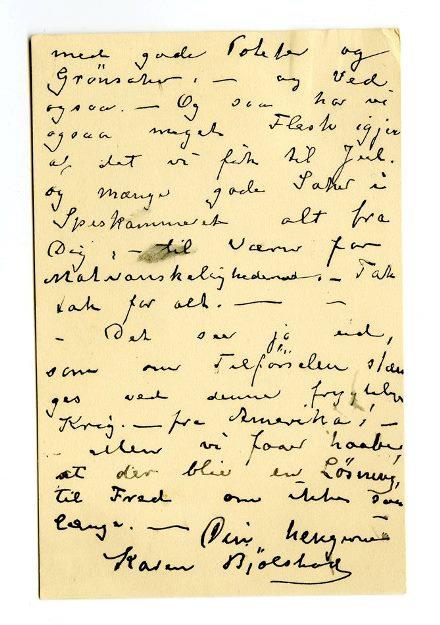 med gode Poteter og
Grönsaker, – og Ved
ogsaa. – Og saa har vi
ogsaa meget Flesk igjen
af det vi fik til Jul.
og mange gode Saker i
Spiskammeret alt fra
Dig, – til Værn for
Matvanskelighederne. – Tak
tak for alt. – –
– Det ser jo ud,
som om Tilförselen stæn
ges ved denne frygtelige
Krig. – fra Amerika; –
– Men vi faar haabe,
at der blir en Lösning,
til Fred om ikke saa
længe. – Din hengivne
Karen Bjölstad